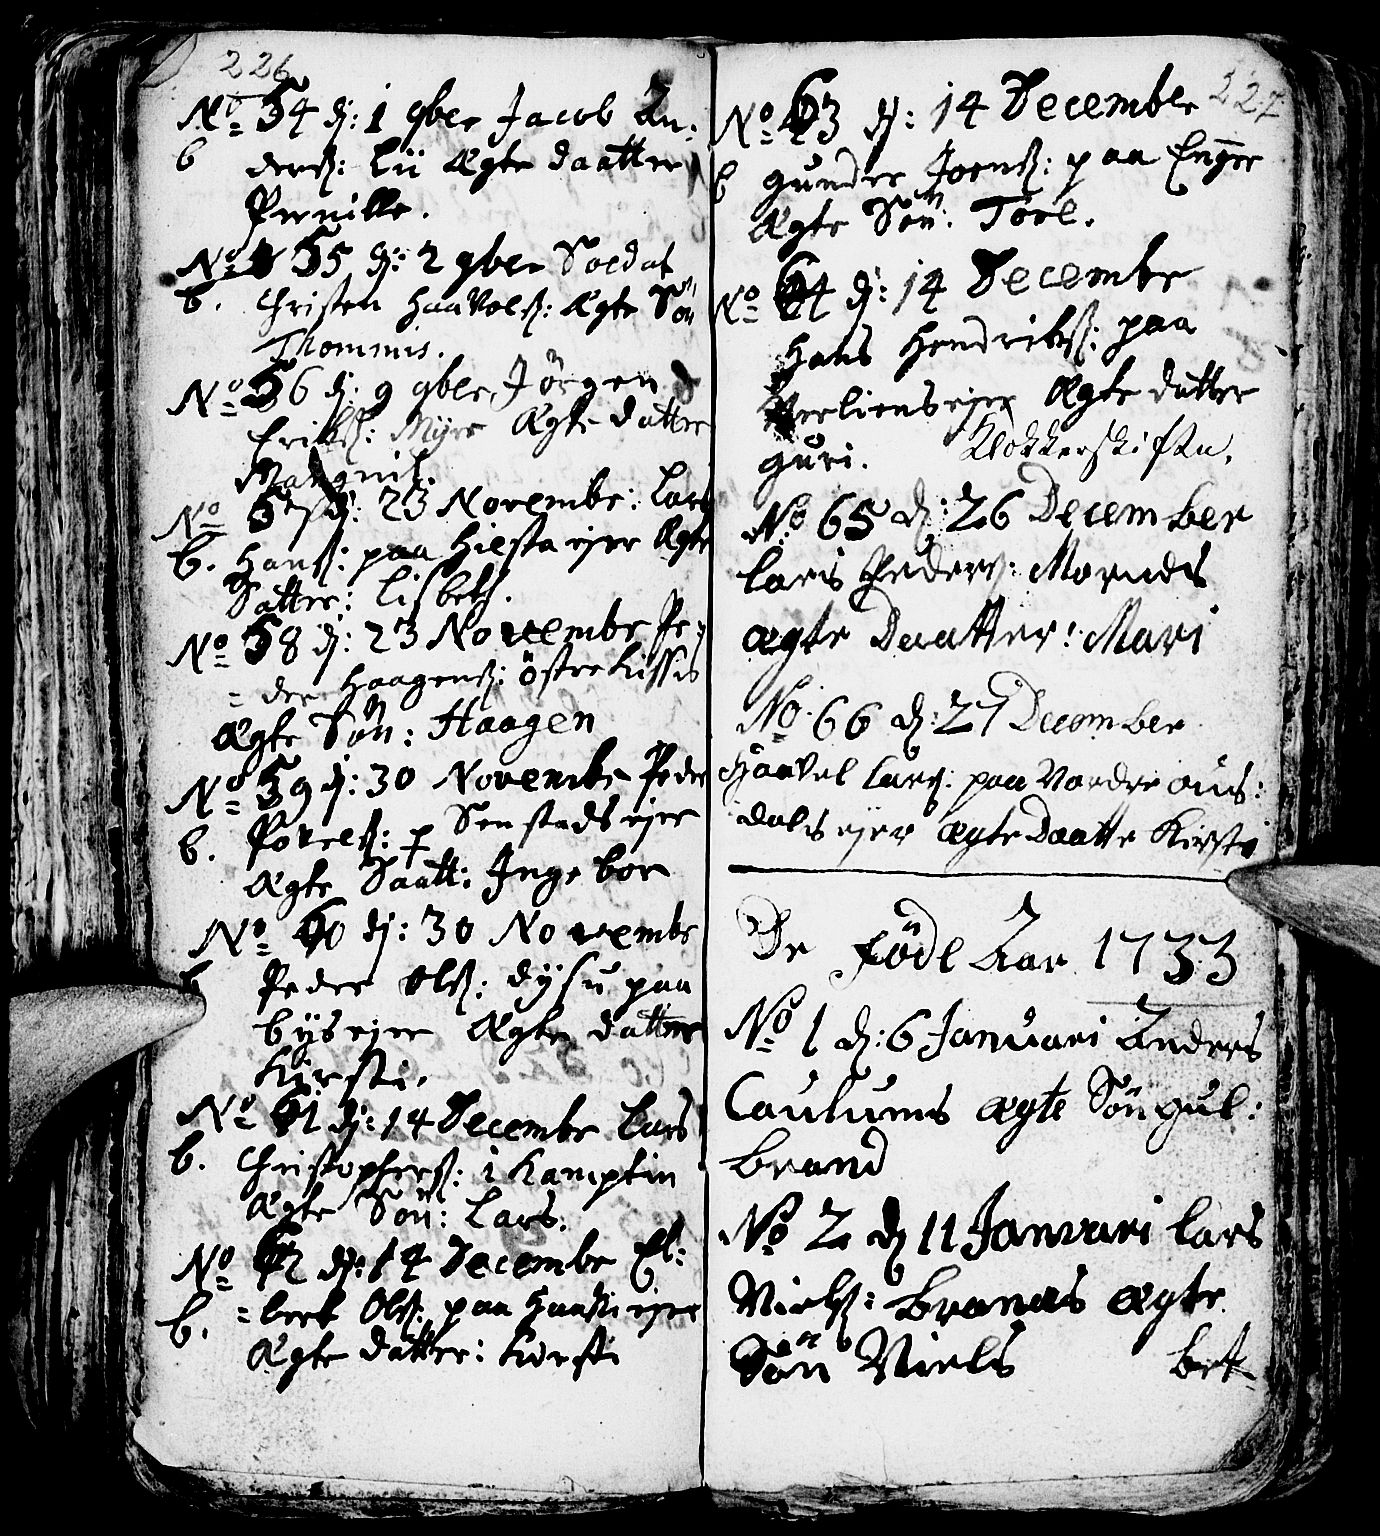 226
No 54 dj: 1 9ber Jacob An:
b derß: Lii Ægte daatter
Pernille.
No 55 dj: 2 9ber Soldat
b. Christen Haavolß: Ægte Sön
Thommis.
No 56 dj: 9 9ber Jörgen
Erikß: Myre Ægte datter
Margnit.
No 57 dj: 23 Novembr: Lars
b. Hanß: paa Hilsta ejer Ægte
Datter: Lisbeth.
No 58 dj: 23 Novembr Pe:
= der Haagenß: östre
Ægte Sön: Haagen
No 59 dj: 30 Novembr Peder
b. Povelß: p Senstads ejer
Ægte Daatt: Ingebor
No 60 dj: 30 Novembr
b Peder Olß: paa
Bys ejer Ægte datter
Kirsti.
No 61 dj: 14 Decembr Lars
b. Christopherß: i Kamptin
Ægte Sön: Lars.
No 62 dj: 14 Decembr El:
b. = lert Olß: paa ejer
Ægte datter: Kirsti
227
No 63 dj: 14 December
b Gunder Joenß: paa Enger
Ægte Sön: Toel.
No 64 dj: 14 Decembr
Hans Hendrikß: paa
ejer Ægte datter
Guri. Klokkerskifta.
No 65 d: 26 December
Lars Pederß: Moruds
ægte Daatter: Mari
No 66 d: 27 December
Haavel Larß: paa Nordre Aus:
dals ejer ægte Daatte Kirsti
De Födl Aar 1733
No 1 d: 6 Januari Anders
Caulums ægte Sön Gul:
brand
No 2 d 11 Januari Lars
Nielß: Branæs ægte
Sön Niels bet